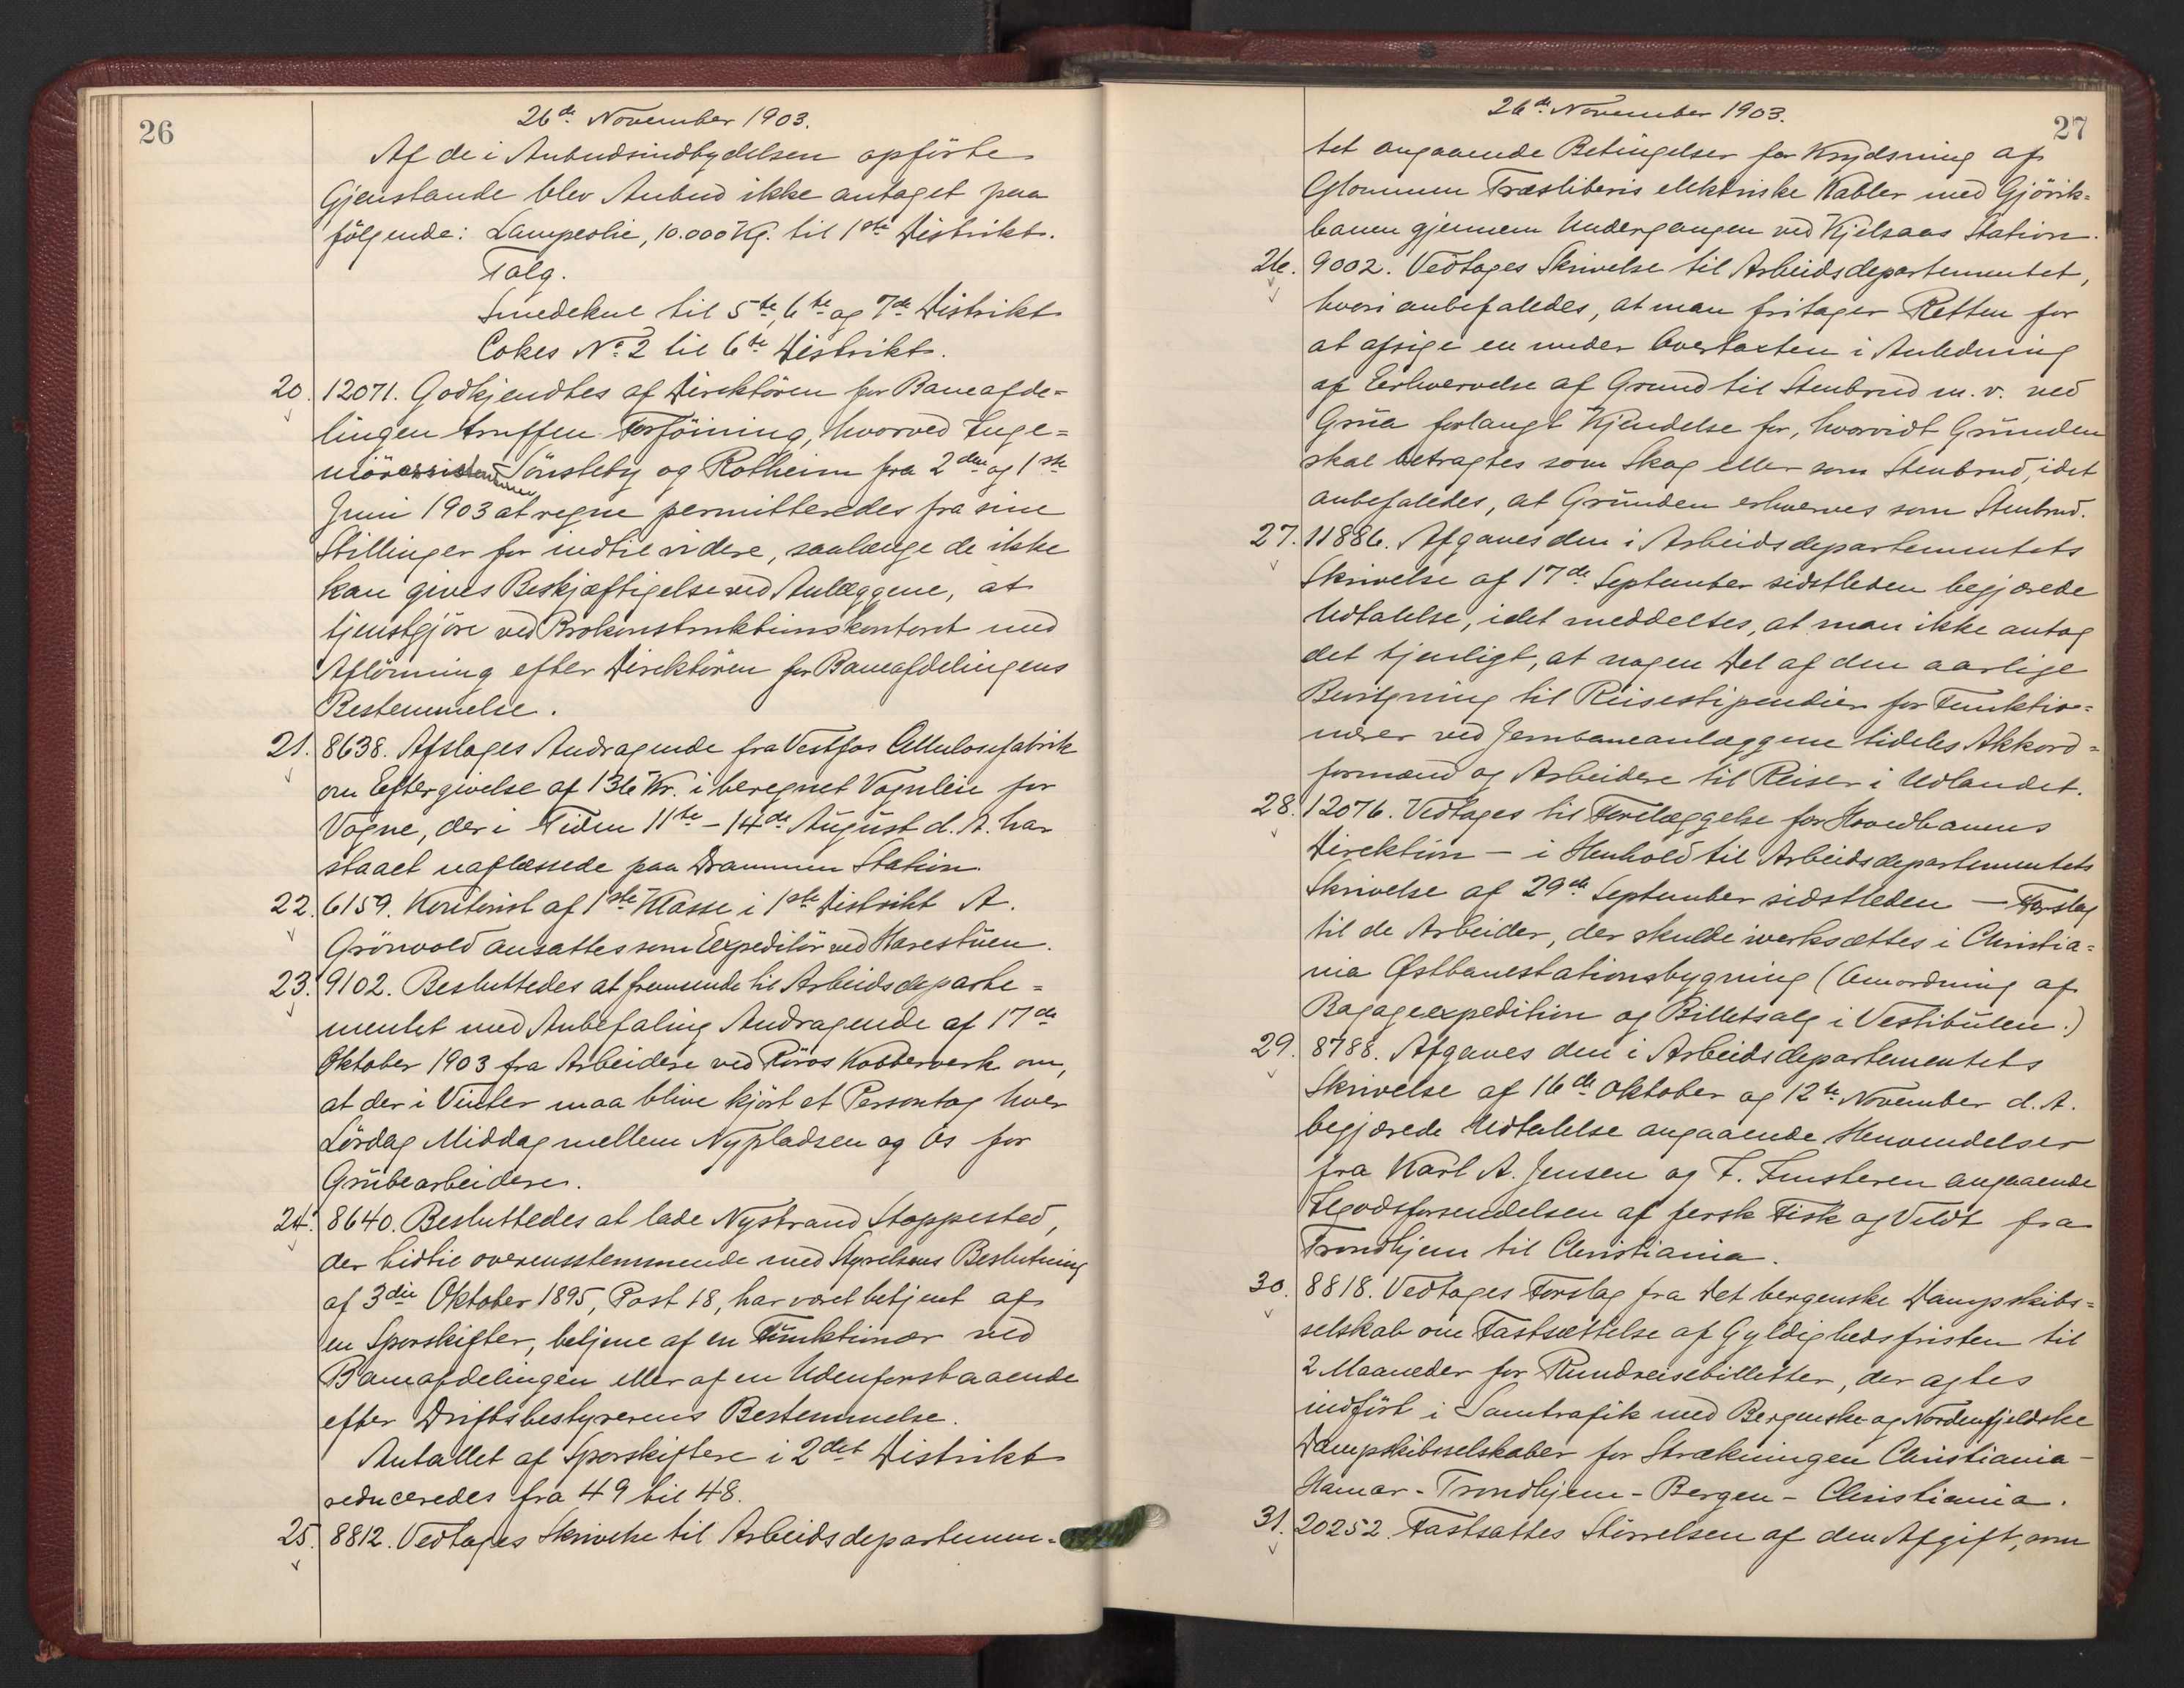 26
26de November 1903.
Af de i Anbudsindbydelsen opförte
Gjenstande blev Anbud ikke antaget paa
fölgende: Lampeolie, 10.000 Kg. til 1ste Distrikt.
Talg.
Smedekul til 5te, 6te og 7de Distrikt
Cokes No. 2 til 6te Distrikt.
20. 12071. Godkjendtes af Direktören for Baneafde=
lingen truffen Forföining, hvorved Inge=
niörassistenterne Sönsteby og Rotheim fra 2den og 1ste
Juni 1903 at regne permitteredes fra sine
Stillinger for indtil videre, saalænge de ikke
kan gives Beskjæftigelse ved Anlæggene, at
tjenstgjöre ved Brokonstruktionskontoret med
Aflönning efter Direktören for Baneafdelingens
Bestemmelse.
21. 8638. Afslages Andragende fra Vestfos Cellulosefabrik
om Eftergivelse af 136 Kr. i beregnet Vognleie for
Vogne, der i Tiden 11te - 14de August d. A. har
staaet uaflæssede paa Drammen Station.
22. 6159. Kontorist af 1ste Klasse i 1ste Distrikt A.
Grönvold ansattes som Expeditör ved Harestuen.
23. 9102. Besluttedes at fremsende til Arbeidsdeparte=
mentet med Anbefaling Andragende af 17de
Oktober 1903 fra Arbeidere ved Röros Kobberverk om,
at der i Vinter maa blive kjört et Persontog hver
Lördag Middag mellem Nypladsen og Os for
Grubearbeidere.
24. 8640. Besluttedes at lade Nystrand Stoppested,
der hidtil overensstemmende med Styrelsens Beslutning
af 3die Oktober 1895, Post 18, har været betjent af
en Sporskifter, betjene af en Funktionær ved
Baneafdelingen eller af en Udenforstaaende
efter Driftsbestyrerens Bestemmelse.
Antallet af Sporskiftere i 2det Distrikt
reduceredes fra 49 til 48.
25. 8812. Vedtages Skrivelse til Arbeidsdepartemen=
27
26de November 1903.
tet angaaende Betingelser for Krydsning af
Glommen Træsliberis elektriske Kabler med Gjövik=
banen gjennem Undergangen ved Kjelsaas Station.
26. 9002. Vedtages Skrivelse til Arbeidsdepartementet,
hvori anbefaledes, at man fritager Retten for
at afsige en under Overtaxten i Anledning
af Erhvervelse af Grund til Stenbrud m. v. ved
Grua forlangt Kjendelse for, hvorvidt Grunden
skal betragtes som Skog eller som Stenbrud, idet
anbefaledes, at Grunden erhverves som Stenbrud.
27. 11886. Afgaves den i Arbeidsdepartementets
Skrivelse af 17de September sidstleden begjærede
Udtalelse, idet meddeltes, at man ikke antog
det tjenligt, at nogen Del af den aarlige
Bevilgning til Reisestipendier for Funktio=
nærer ved Jernbaneanlæggene tildeles Akkord=
formænd og Arbeidere til Reiser i Udlandet.
28. 12076. Vedtages til Forelæggelse for Hovedbanens
Direktion - i Henhold til Arbeidsdepartementets
Skrivelse af 29de September sidstleden - Forslag
til de Arbeider, der skulde iverksættes i Christia=
nia Østbanestationsbygning (Omordning af
Bagageexpedition og Billetsalg i Vestibulen.)
29. 8788. Afgaves den i Arbeidsdepartementets
Skrivelse af 16de Oktober og 12te November d. A.
begjærede Udtalelse angaaende Henvendelser
fra Karl A. Jensen og F. angaaende
Ilgodsforsendelsen af fersk Fisk og Vildt fra
Trondhjem til Christiania.
30. 8818. Vedtages Forslag fra Det bergenske Dampskibs=
selskab om Fastsættelse af Gyldighedsfristen til
2 Maaneder for Rundreisebilletter, der agtes
indfört i Samtrafik med Bergenske og Nordenfjeldske
Dampskibsselskaber for Strækningen Christiania -
Hamar - Trondhjem - Bergen - Christiania.
31. 20252. Fastsattes Störrelsen af den Afgift, som